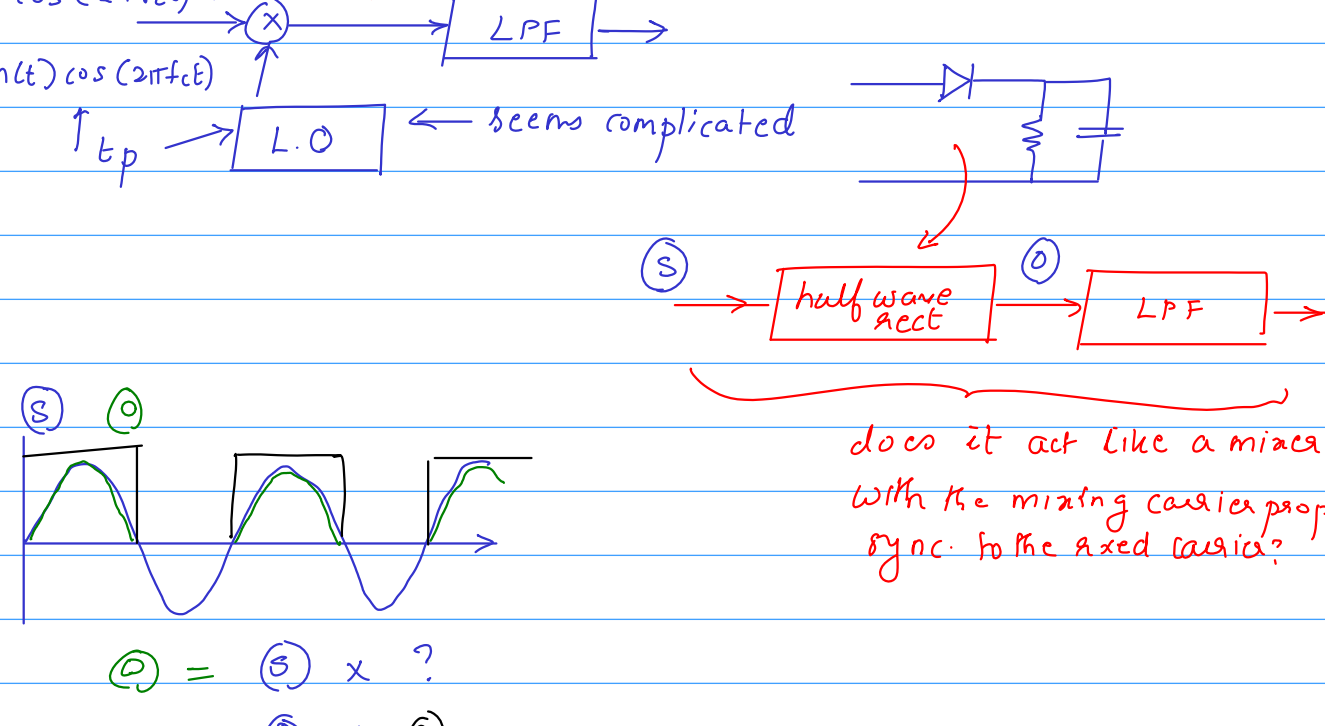 LPF
m(t) cos (2πfct)
tp
L.O
← seems complicated
S
half wave
rect
O
LPF
S O
does it act like a mixer
with the mixing carrier prop
sync. to the rxed carrier?
O = S x ?